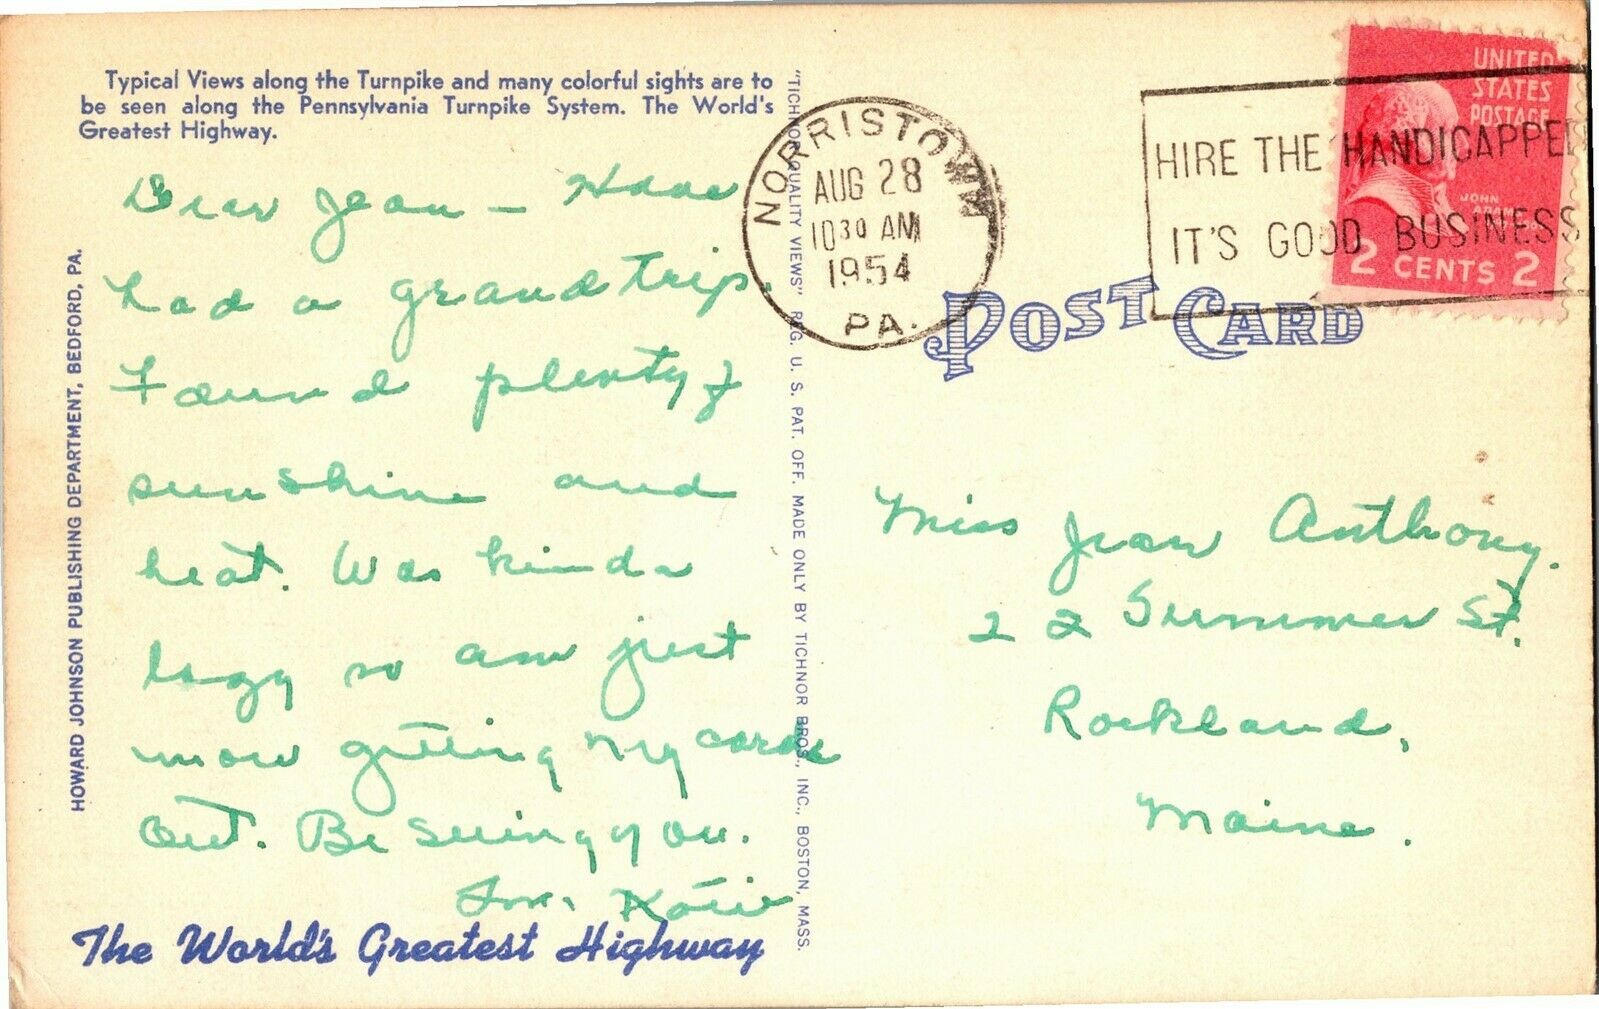 Typical Views along the Turnpike and many colorful sights are to
be seen along the Pennsylvania Turnpike System. The World's
Greatest Highway.
Dear Jean – Have
had a grand trip.
Found plenty of
sunshine and
heat. Was kinda
lazy so am just
now getting my cards
out. Be seeing you.
Katie
The World's Greatest Highway
HOWARD JOHNSON PUBLISHING DEPARTMENT, BEDFORD, PA.
"TICHNOR QUALITY VIEWS" REG. U. S. PAT. OFF. MADE ONLY BY TICHNOR BROS., INC., BOSTON, MASS.
NORRISTOWN
AUG 28
10 30 AM
1954
PA.
HIRE THE HANDICAPPED
IT'S GOOD BUSINESS
UNITED
STATES
POSTAGE
JOHN
ADAMS
2 CENTS 2
POST CARD
Miss Jean Anthony.
22 Summer St.
Rockland,
Maine.